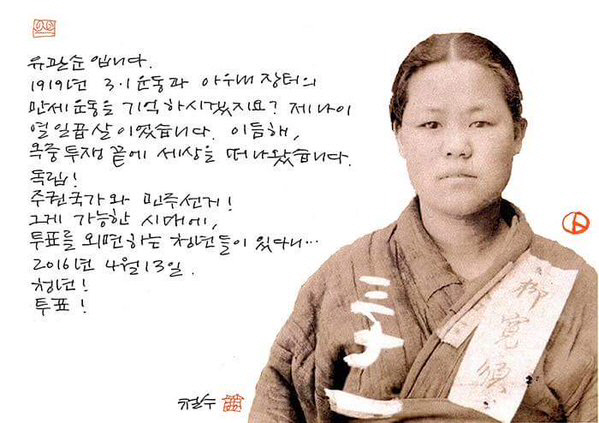 유관순입니다.
1919년 3·1운동과 아우내 장터의
만세운동을 기억하시겠지요? 제 나이
열 일곱 살이었습니다. 이듬해,
옥중투쟁 끝에 세상을 떠나왔습니다.
독립!
주권국가와 민주선거!
그게 가능한 시대에,
투표를 외면하는 청년들이 있다니…
2016년 4월 13일.
청년!
투표!
철수
柳寬順